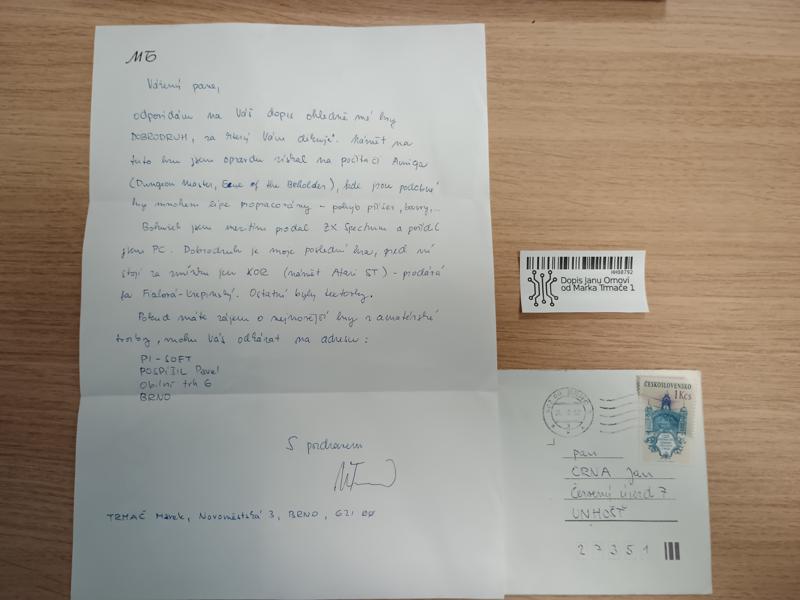 MT
Vážený pane,
odpovídám na Váš dopis ohledně mé hry
DOBRODRUH, za který Vám děkuji. Námět na
tuto hru jsem opravdu získal na počítači Amiga
(Dungeon Master, Eye of the Beholder), kde jsou podobné
hry mnohem lépe propracovány - pohyb příšer, barvy,...
Bohužel jsem mezitím prodal ZX Spectrum a pořídil
jsem PC. Dobrodruh je moje poslední hra, před ní
stojí za zmínku jen KOR (námět Atari ST) - prodává
fa Fialová-Krepinský. Ostatní byly textovky.
Pokud máte zájem o nejnovější hry z amatérské
tvorby, mohu Vás odkázat na adresu:
PI-SOFT
POSPÍŠIL Pavel
Obilní trh 6
BRNO
S pozdravem
TRMAČ Marek, Novoměstská 3, BRNO, 621 00
HH00792
Dopis Janu Ornovi
od Marka Trmače 1
ČESKOSLOVENSKO
1 Kčs
pan
ORNA Jan
Červený újezd 7
UNHOŠŤ
27351